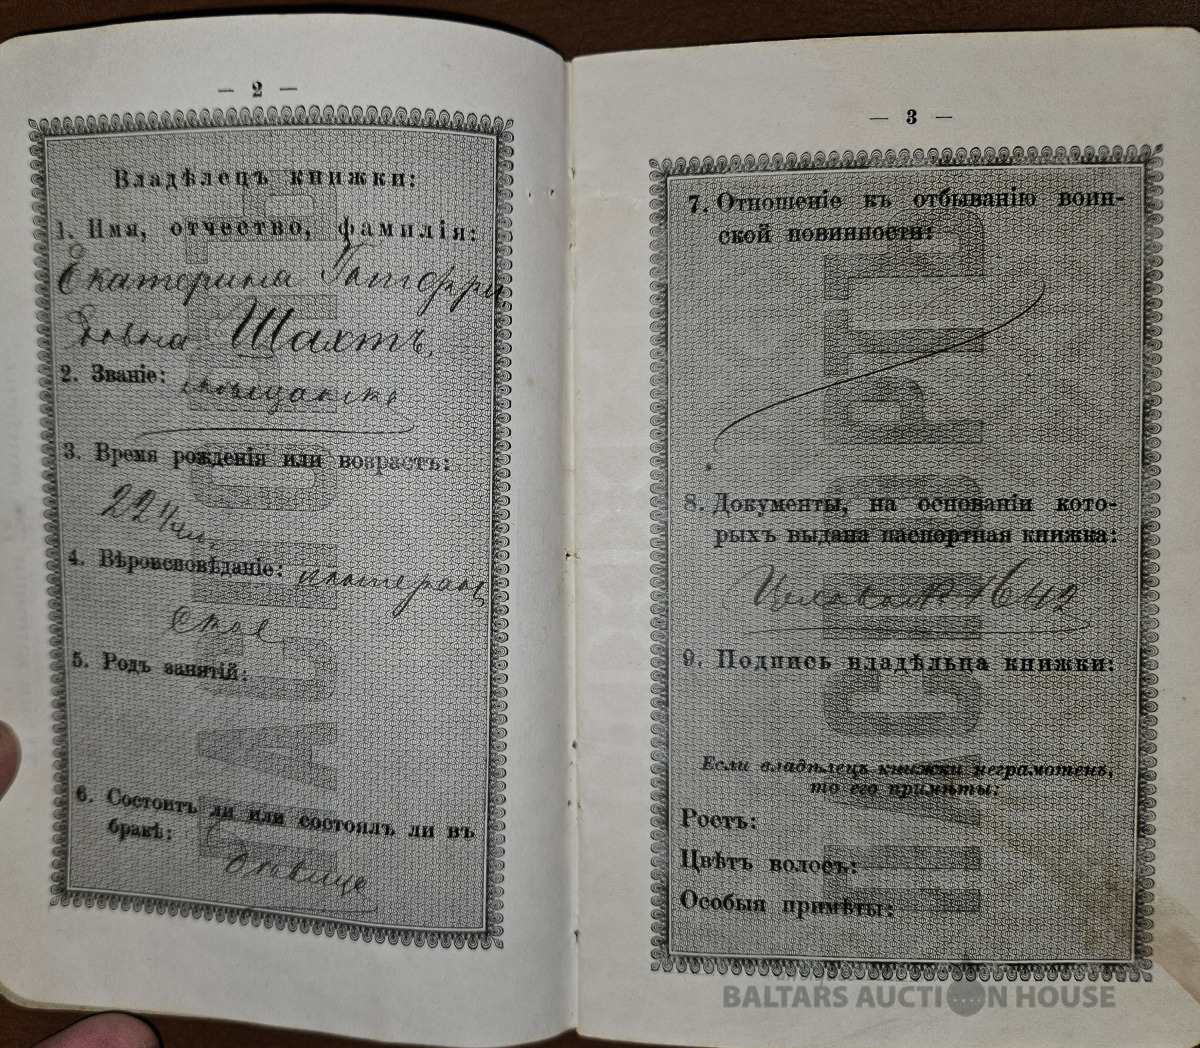 — 2 —
Владѣлецъ книжки:
1. Имя, отчество, фамилія:
Екатерина Готфри
довна Шахтъ.
2. Званіе: мѣщанка
3. Время рожденія или возрастъ:
22
4. Вѣроисповѣданіе: лютеран
ское
5. Родъ занятій:
6. Состоитъ ли или состоялъ ли въ
бракѣ:
девица
ПАСПОРТЪ
— 3 —
7. Отношеніе къ отбыванію воин-
ской повинности:
8. Документы, на основаніи кото-
рыхъ выдана паспортная книжка:
1642
9. Подпись владѣльца книжки:
Если владѣлецъ книжки неграмотенъ,
то его примѣты:
Ростъ:
Цвѣтъ волосъ:
Особыя примѣты:
ПАСПОРТЪ
BALTARS AUCTION HOUSE